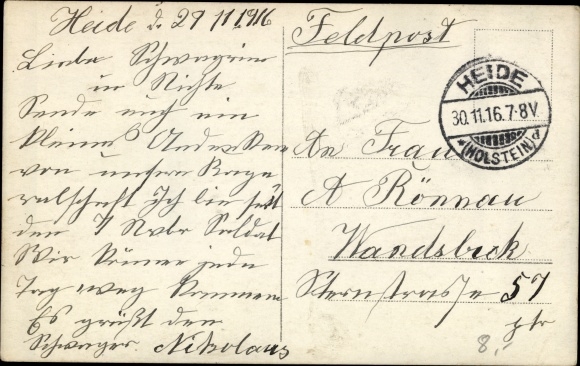 Heide d. 29 11 1916
Liebe Schwägerin
u Nichte
Sende euch ein
kleines Andenken
von unsere Korporalschaft
Ich bin seit
den 7 Novbr Soldat
Wir können jede
Tag weg kommen
Es grüßt den
Schwager Nikolaus
Feldpost
HEIDE
30.11.16.7-8V.
*(HOLSTEIN)d
An Frau
A Rönnau
Wandsbeck
Sternstraße 57
ptr
8,-